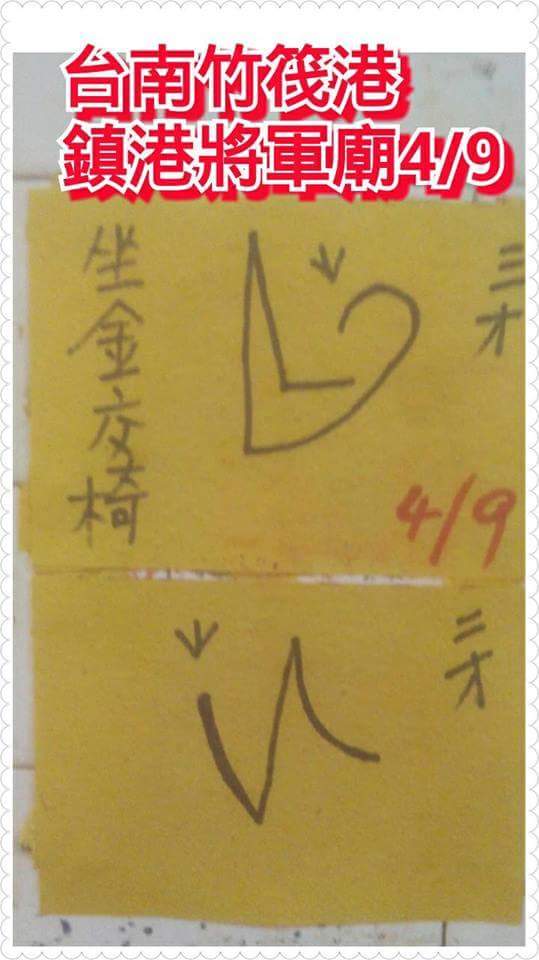 台南竹筏港
鎮港將軍廟4/9
三才
坐金交椅
4/9
二才